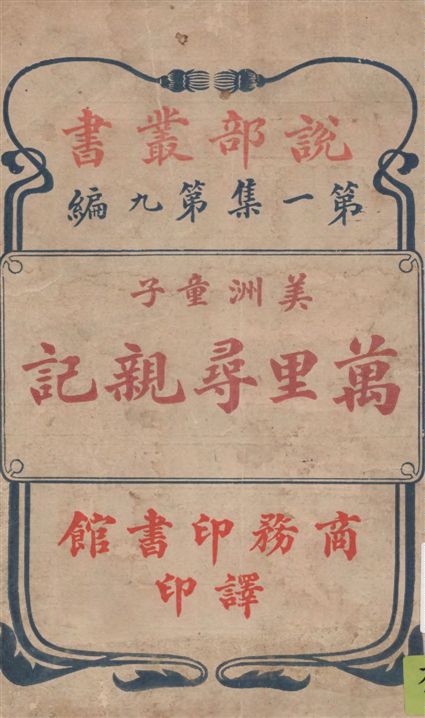 說部叢書
第一集第九編
美洲童子
萬里尋親記
商務印書館
譯印